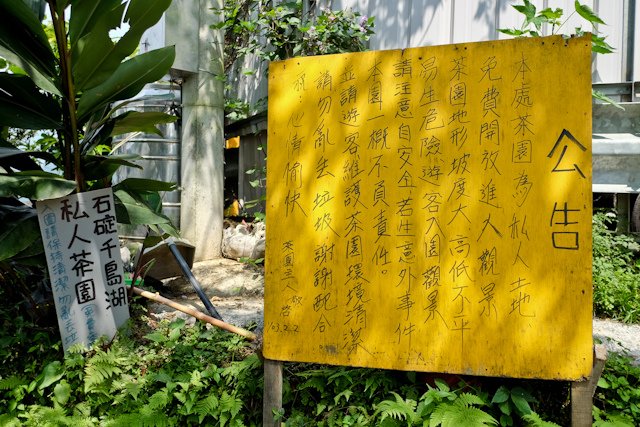 公告
本處茶園為私人土地
免費開放進入觀景
茶園地形坡度大高低不平
易生危險遊客入園觀景
請注意自安全若生意外事件
本園一概不負責任。
並請遊客維護茶園環境清潔
請勿亂丟垃圾謝謝配合
祝:心情愉快
茶園主人 啓
石碇千島湖
私人茶園
園區保持清潔勿亂丟